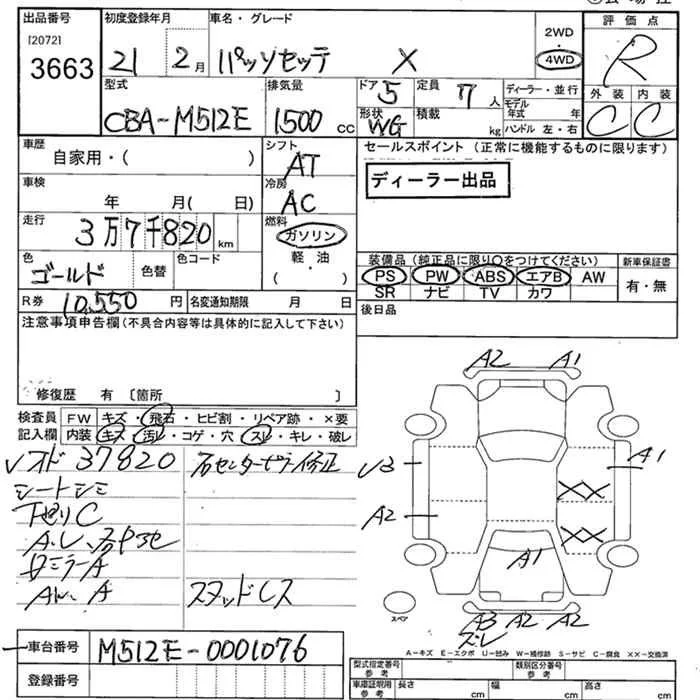 出品番号 初度登録年月 車名・グレード 評価点
[2072] 3663
21 2月 パッソセッテ X
2WD
4WD
R
型式 排気量 ドア 定員 ディーラー・並行 外装 内装
CBA-M512E 1500 CC 5 7人
形状 積載 モデル年式 年
WG kg ハンドル 左・右 C C
車歴 シフト セールスポイント (正常に機能するものに限ります)
自家用・( ) AT
ディーラー出品
車検 冷房
年 月( 日) AC
走行 燃料
3万7千820km ガソリン
軽・油
( )
装備品 (純正品に限り○をつけてください) 新車保証書
色 色替 色コード
ゴールド
PS PW ABS エアB AW 有・無
SR ナビ TV カワ
R券 10,550円 名変通知期限 月 日
後日品
注意事項申告欄(不具合内容等は具体的に記入して下さい)
修復歴 有 〔箇所 〕
検査員記入欄
FW キズ・飛石・ヒビ割・リペア跡・×要
内装 キズ・汚レ・コゲ・穴・スレ・キレ・破レ
オド 37820
シートシミ
下廻りC
ミラーA
スタッドレス
A2 A1
U3 A1
A2 XX
XX
A1
スペア
A3 A2 A2
ズレ
A-キズ E-エクボ U-凹み W-補修跡 S-サビ C-腐食 ××-交換済
車台番号 M512E-0001076
登録番号
型式指定番号 参考 類別区分番号 参考
車庫証明用 参考 長さ cm 幅 cm 高さ cm